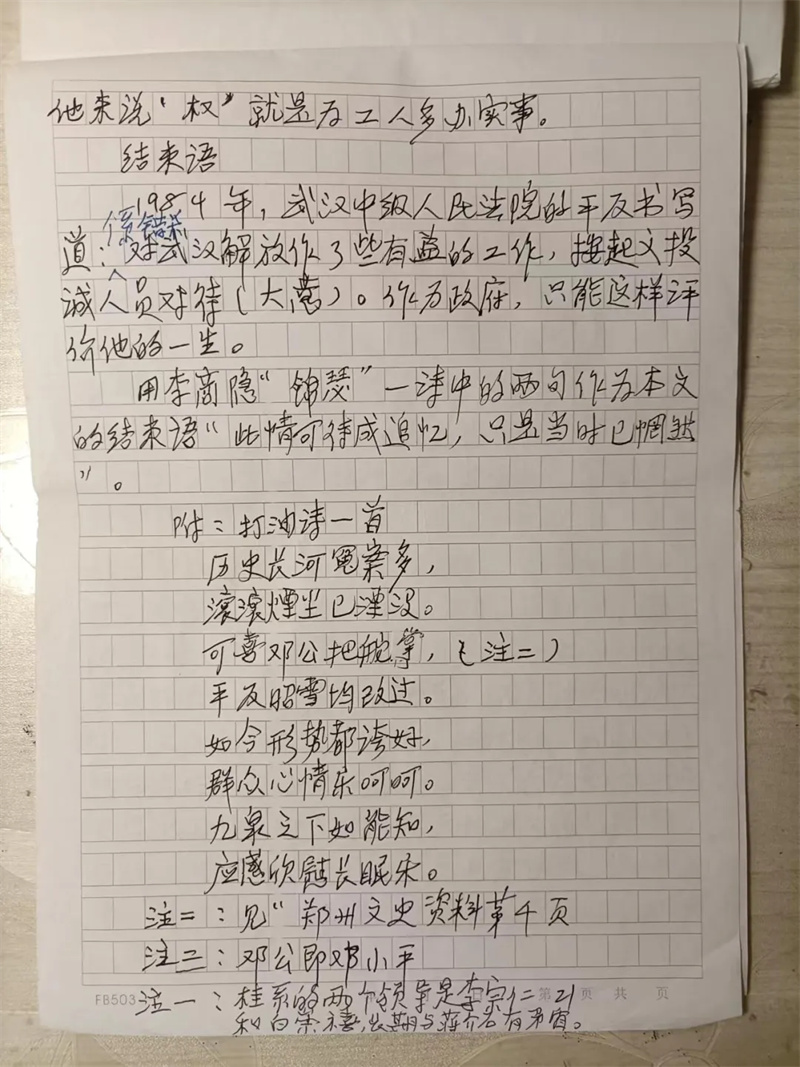 他来说“权”就是为工人多办实事。
结束语
1984年，武汉中级人民法院的平反书写
道：系错杀，对武汉解放作了些有益的工作，按起义投
诚人员对待（大意）。作为政府，只能这样评
价他的一生。
用李商隐“锦瑟”一诗中的两句作为本文
的结束语“此情可待成追忆，只是当时已惘然
”。
附：打油诗一首
历史长河冤案多，
滚滚煙尘已湮没。
可喜邓公把舵掌，（注二）
平反昭雪均改过。
如今形势都誇好，
群众心情乐呵呵。
九泉之下如能知，
应感欣慰长眠乐。
注二：见“郑州文史资料第4页
注三：邓公即邓小平
注一：桂系的两个领导是李宗仁
和白崇禧，长期与蒋介石有矛盾。
FB503 第21页 共 页